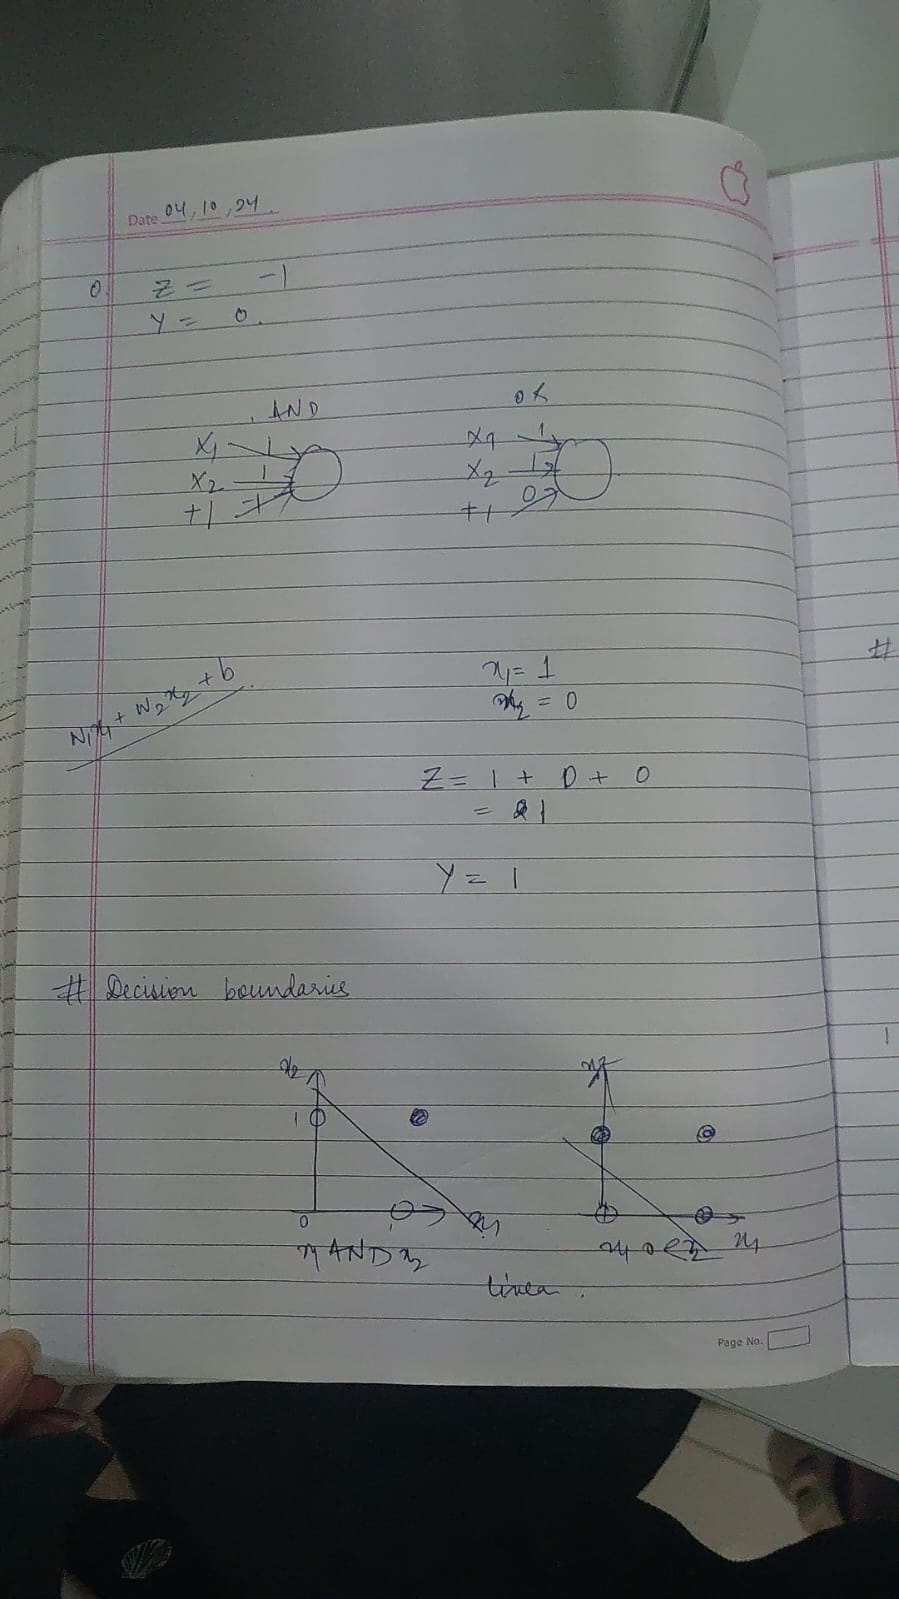 Date 04, 10, 24
0. Z = -1
Y = 0.
AND
X1 1
X2 1
+1 -1
OR
X1 1
X2 1
+1 0
W1x1 + W2x2 + b
x1 = 1
x2 = 0
Z = 1 + 0 + 0
= 1
Y = 1
# Decision boundaries
x2
1
0 1 x1
x1 AND x2
x2
x1
x1 OR x2
linea.
Page No.
#
1